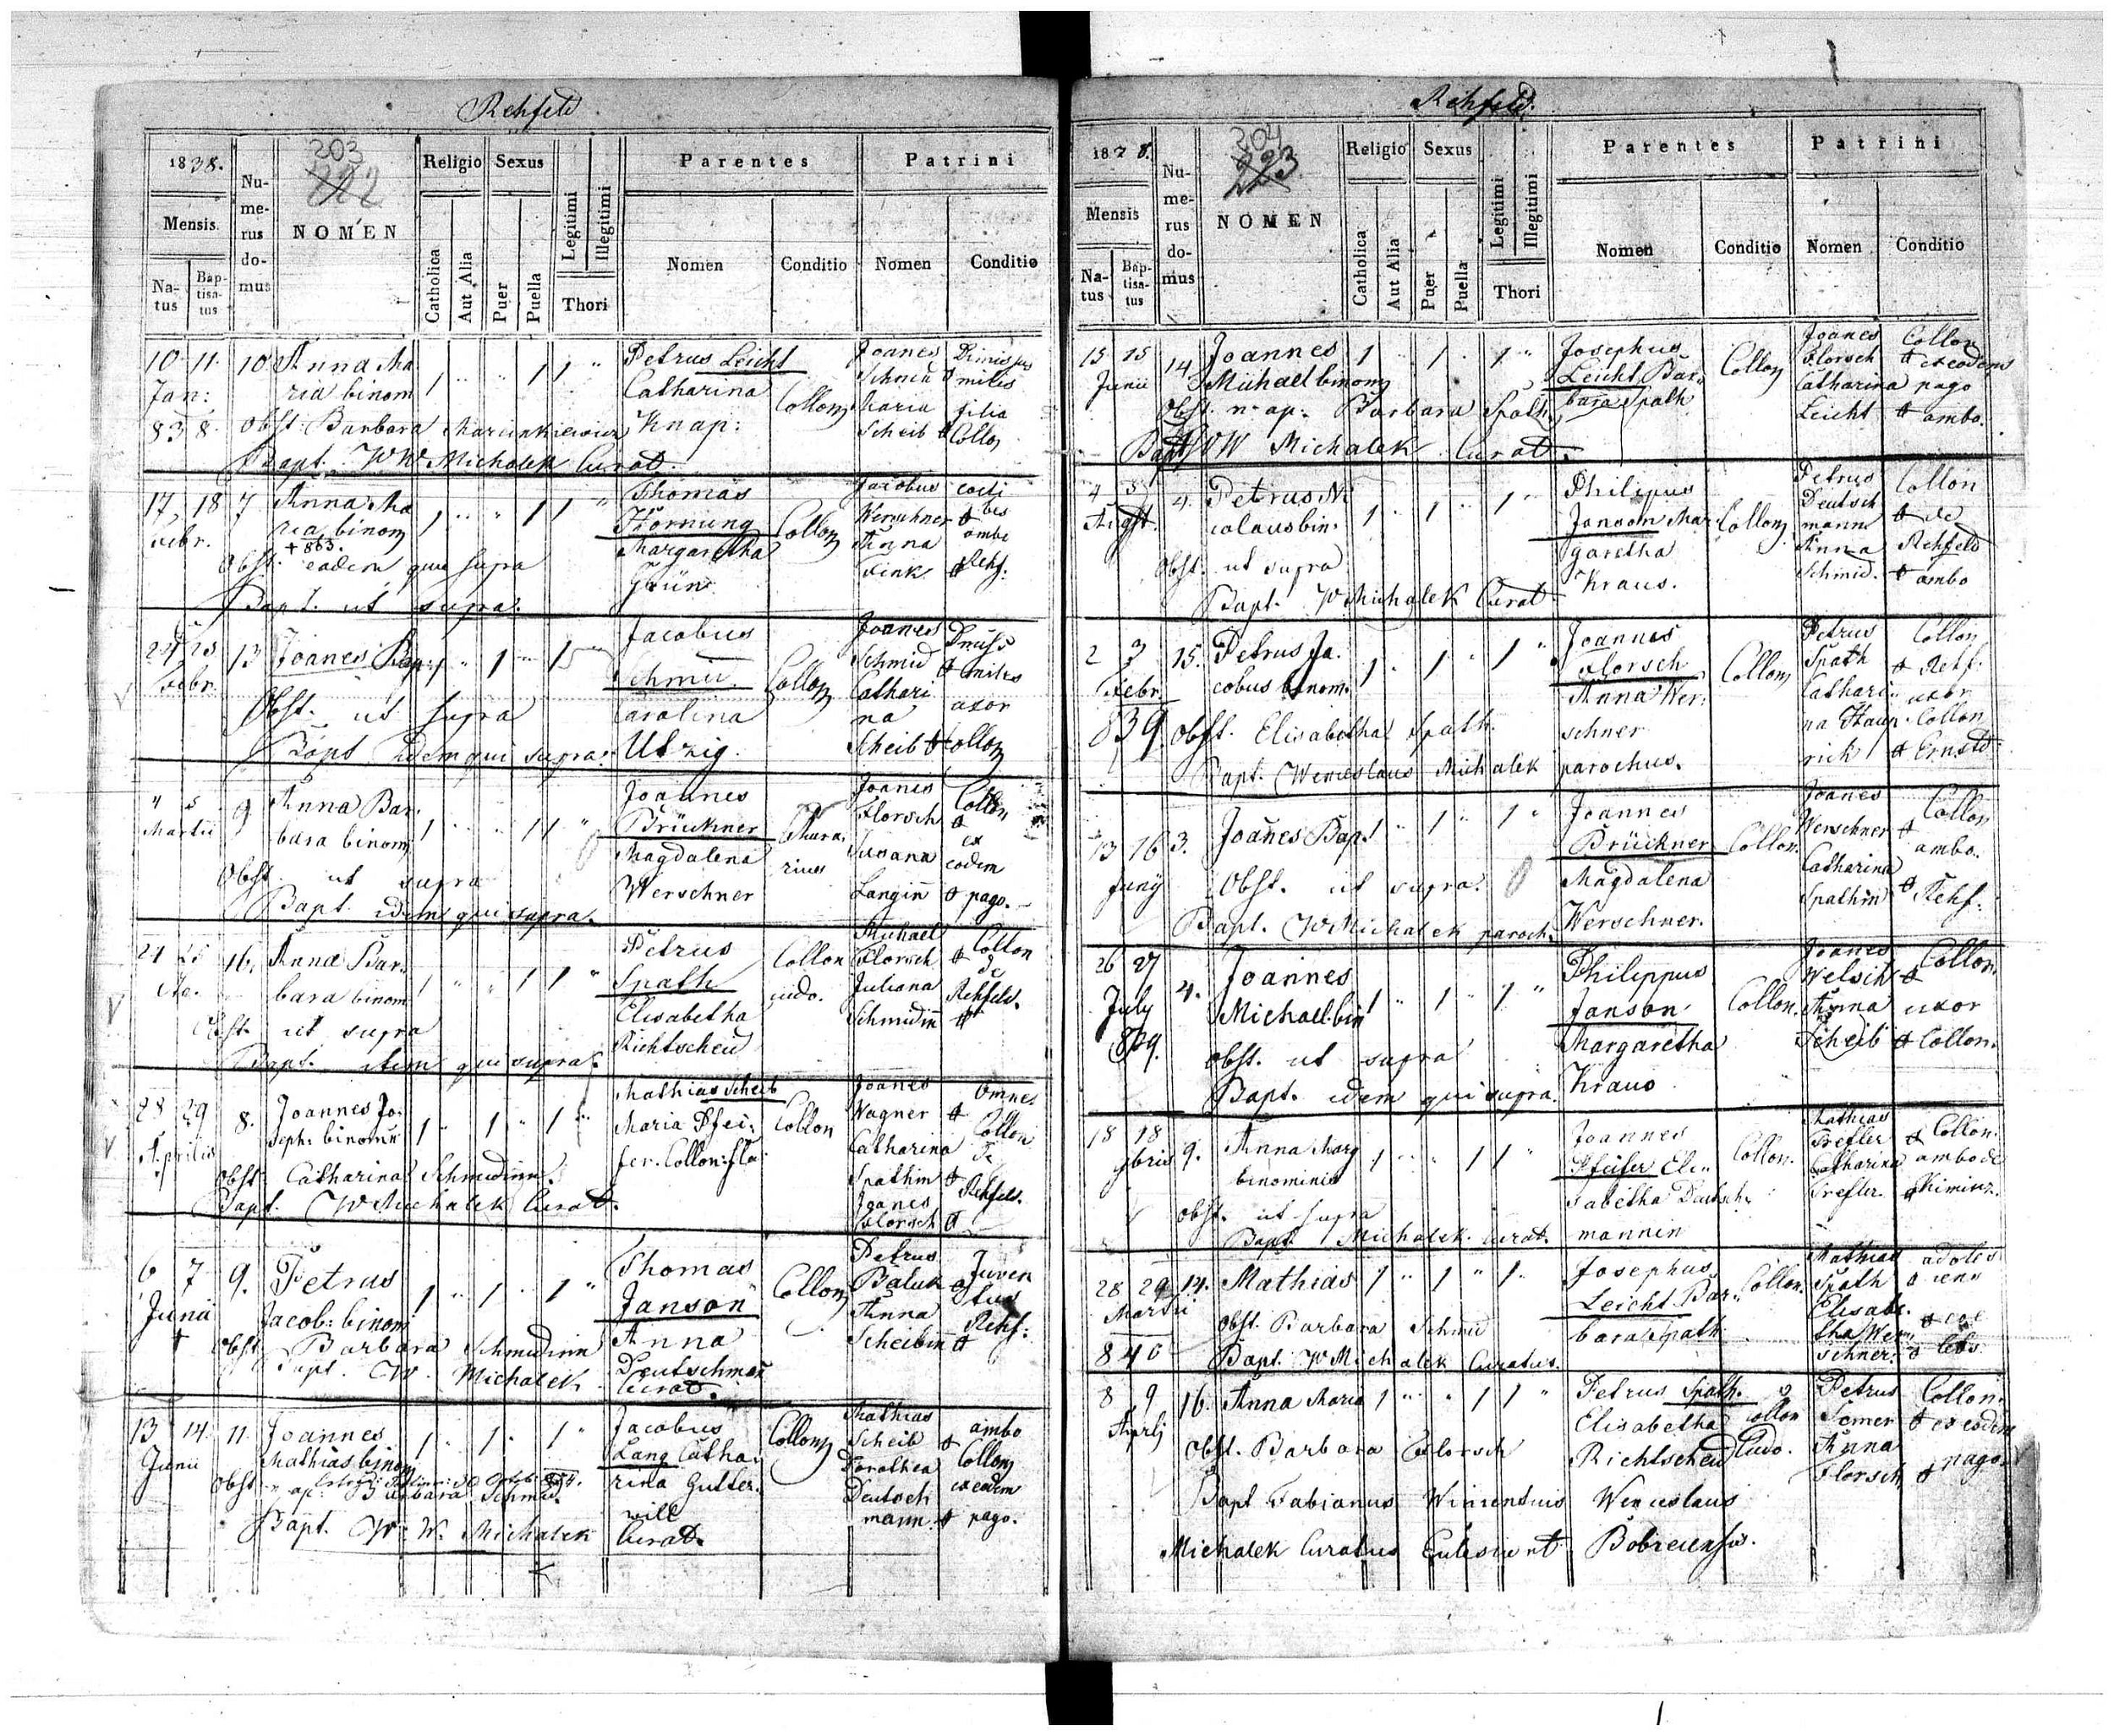 Rehfeld
1838.
203
222
Mensis.
Natus
Baptisatus
Numerus domus
NOMEN
Religio
Catholica
Aut Alia
Sexus
Puer
Puella
Legitimi
Illegitimi
Thori
Parentes
Nomen
Conditio
Patrini
Nomen
Conditio
10 11 10 Anna Ma 1 " " 1 1 " Petrus Leicht Joanes
Jan: ria binom Catharina Collon Schmid milis
838 Obst. Barbara Marcinkiewicz Knap: Maria filia
Scheib Collon
Bapt. WW Michalek Curat.
17 18 7 Anna Ma 1 " " 1 1 " Thomas Jacobus coeli
Febr. ria binom Hornung Collon Werschner bes
+ 863. Margaretha Anna ambo
Obst. eadem quae supra Grün Fink Rehf.
Bapt. ut supra.
13 Joanes Bap: 1 " 1 " 1 Jacobus Joanes
Febr. Schmid Collon Schmid milis
Obst. ut supra Carolina Cathari uxor
na
Bapt idem qui supra. Utzig. Scheib Collon
" 5 9 Anna Bar 1 " " 1 1 " Joannes Joanes Collon
Martii bara binom Brückner Florsch ex
Magdalena rius Susana eodem
Obst. ut supra Werschner Langin pago.
Bapt. idem qui supra.
24 25 16. Anna Bar 1 " " 1 1 " Petrus Collon Michael Collon
bara binom Spath judo. Florsch de
Obst. ut supra Elisabetha Juliana Rehfeld.
Richtscheid Schmidin
Bapt. idem qui supra.
28 29 8. Joannes Jo: 1 " 1 " 1 " Mathias Scheib Collon Joanes Omnes
Aprilis seph: binomin Maria Pfei: Wagner Collon
fer. Collon: fla: Catharina
Obst. Catharina Schmidinn. Spathin Rehfeld.
Bapt. W Michalek Curat. Joanes
Florsch
6 7 9. Petrus 1 " 1 " 1 " Thomas Collon Petrus Juven
Junii Jacob: binom Janson Baluk
Anna Anna Rehf:
Obst Barbara Schmidinn Deutschman Scheibin
Bapt. W. Michalek Curat.
13 14. 11. Joannes 1 " 1 " 1 " Jacobus Collon Mathias ambo
Junii Mathias binom Lang Catha: Scheib Collon
rina Gutter: Dorothea ex eodem
Obst. n ap: Barbara Schmid. will Deutsch pago.
mann
Bapt. W. W. Michalek Curat.
Rehfeld.
1838.
204
223
Mensis
Natus
Baptisatus
Numerus domus
NOMEN
Religio
Catholica
Aut Alia
Sexus
Puer
Puella
Legitimi
Illegitimi
Thori
Parentes
Nomen
Conditio
Patrini
Nomen
Conditio
15 15 14 Joannes 1 " 1 " 1 " Josephus Collon Joanes Collon
Junii Michael binom Leicht Bar: Florsch ex eodem
bara Spath Catharina pago
Obst. n. ap: Barbara Spath Leicht ambo.
Bapt WW Michalek Curat.
4 5 4. Petrus Ni 1 " 1 " 1 " Philipus Petrus Collon
Augst. colaus bin. Janson Mar: Collon Deutsch
garetha mann de
Obst. ut supra Kraus. Anna Rehfeld
Schmid. ambo
Bapt. W Michalek Curat
2 3 15. Petrus Ja: 1 " 1 " 1 " Joannes Petrus Collon
Febr. cobus binom. Florsch Collon Spath Rehf.
839 Anna Wer: Cathari: uxor
Obst. Elisabetha Spath. schner na Haup: Collon
rich Ernstd.
Bapt. Wenceslaus Michalek parochus.
13 16 3. Joañes Bap. 1 " 1 " 1 " Joannes Joanes Collon
Juny Brückner Collon. Werschner ambo.
Obst. ut supra. Magdalena Catharina
Werschner. Spathin Rehf.
Bapt. W Michalek paroch.
26 27 4. Joannes 1 " 1 " 1 " Philippus Joanes Collon.
July Michael bin Janson Collon. Welsch
839. Margaretha Anna uxor
Obst. ut supra Kraus Scheib Collon.
Bapt. idem qui supra.
18 18 9. Anna Marg 1 " " 1 1 " Joannes Collon. Mathias Collon.
9bris binominis Pfeifer Eli: Trefler ambo de
sabetha Deutsch: Catharina
Obst. ut supra mannin Trefler.
Bapt Michalek Curat.
28 29 14. Mathias 1 " 1 " 1 " Josephus Collon. Mathias adoles
Martii Leicht Bar: Spath cens
Obst. Barbara Schmid bara Spath Elisabe:
840 tha Wer: coe
Bapt. W Michalek Curatus. schner. lebs
8 9 16. Anna Maria 1 " " 1 1 " Petrus Spath. Petrus Collon.
Aprlj Elisabetha Collon Semer ex eodem
Obst. Barbara Florsch Richtscheid Judo. Anna pago.
Florsch
Bapt Fabianus Wincentius Wenceslaus
Michalek Curatus